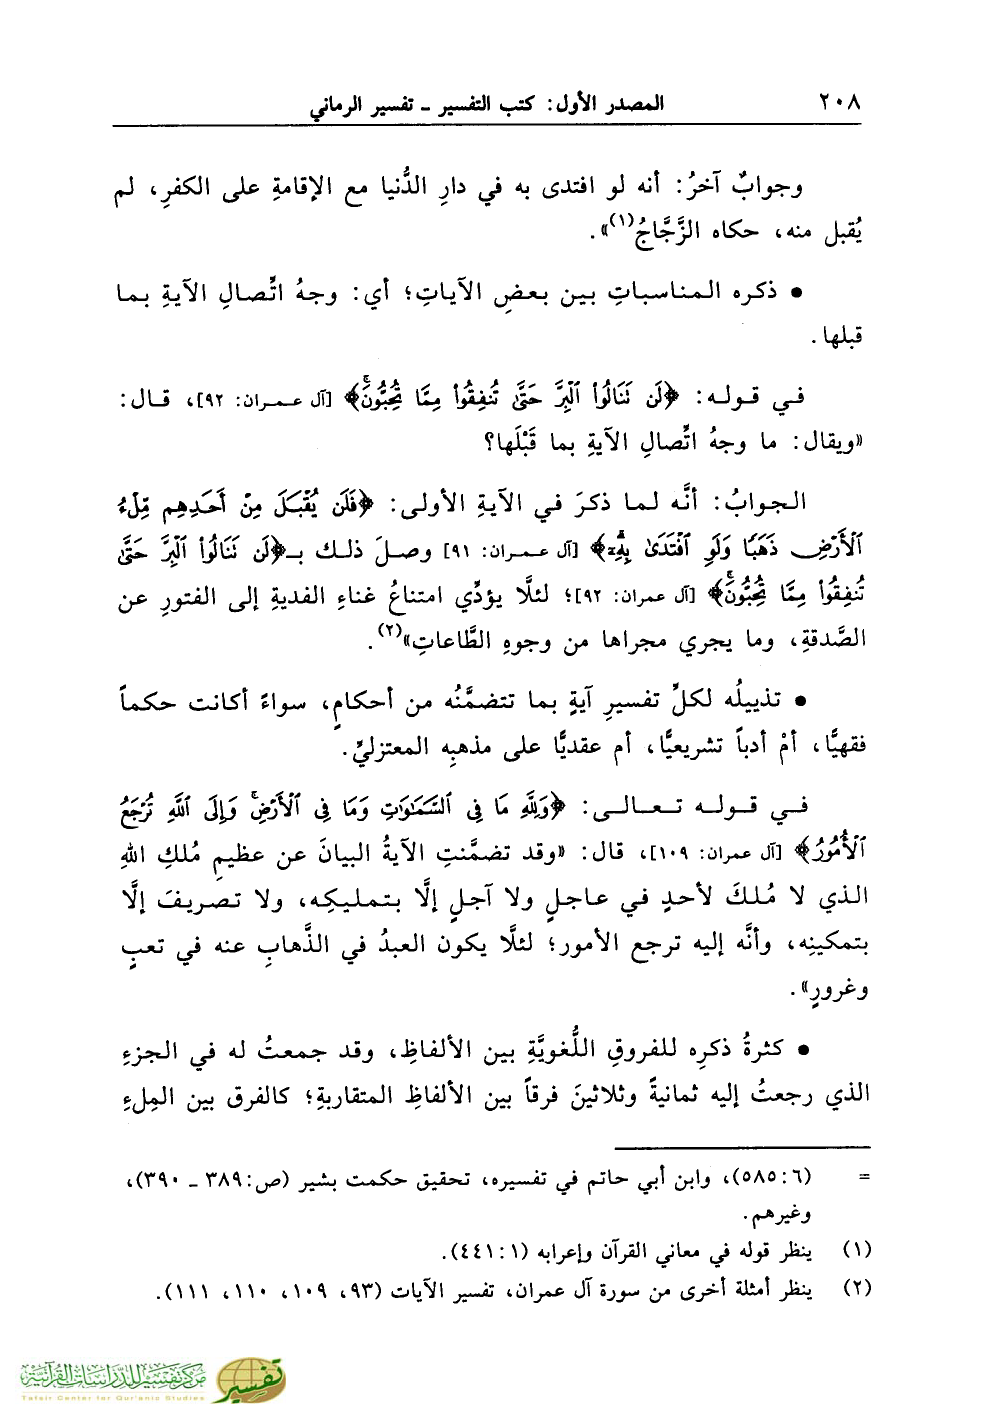 ٢٠٨ المصدر الأول: كتب التفسير - تفسير الرماني
وجوابٌ آخرُ: أنه لو افتدى به في دارِ الدُّنيا مع الإقامةِ على الكفرِ، لم
يُقبل منه، حكاه الزَّجَّاجُ(١)».
• ذكره المناسباتِ بين بعضِ الآياتِ؛ أي: وجهُ اتِّصالِ الآيةِ بما
قبلها.
في قوله: ﴿لَن نَنَالُواْ ٱلْبِرَّ حَتَّىٰ تُنفِقُواْ مِمَّا تُحِبُّونَۚ﴾ [آل عمران: ٩٢]، قال:
«ويقال: ما وجهُ اتِّصالِ الآيةِ بما قَبْلَها؟
الجوابُ: أنَّه لما ذكرَ في الآيةِ الأولى: ﴿فَلَن يُقْبَلَ مِنْ أَحَدِهِم مِّلْءُ
ٱلْأَرْضِ ذَهَبًا وَلَوِ ٱفْتَدَىٰ بِهِۦٓۗ﴾ [آل عمران: ٩١] وصلَ ذلك بـ﴿لَن نَنَالُواْ ٱلْبِرَّ حَتَّىٰ
تُنفِقُواْ مِمَّا تُحِبُّونَۚ﴾ [آل عمران: ٩٢]؛ لئلَّا يؤدِّي امتناعُ غناءِ الفديةِ إلى الفتورِ عن
الصَّدقةِ، وما يجري مجراها من وجوهِ الطَّاعاتِ»(٢).
• تذييلُه لكلِّ تفسيرِ آيةٍ بما تتضمَّنُه من أحكامٍ، سواءً أكانت حكماً
فقهيًّا، أمْ أدباً تشريعيًّا، أم عقديًّا على مذهبِه المعتزليِّ.
في قوله تعالى: ﴿وَلِلَّهِ مَا فِى ٱلسَّمَٰوَٰتِ وَمَا فِى ٱلْأَرْضِۚ وَإِلَى ٱللَّهِ تُرْجَعُ
ٱلْأُمُورُ﴾ [آل عمران: ١٠٩]، قال: «وقد تضمَّنتِ الآيةُ البيانَ عن عظيمِ مُلكِ اللهِ
الذي لا مُلكَ لأحدٍ في عاجلٍ ولا آجلٍ إلَّا بتمليكِه، ولا تصريفَ إلَّا
بتمكينِه، وأنَّه إليه ترجع الأمور؛ لئلَّا يكون العبدُ في الذَّهابِ عنه في تعبٍ
وغرورٍ».
• كثرةُ ذكرِه للفروقِ اللُّغويَّةِ بين الألفاظِ، وقد جمعتُ له في الجزءِ
الذي رجعتُ إليه ثمانيةً وثلاثينَ فرقاً بين الألفاظِ المتقاربةِ؛ كالفرق بين المِلءِ
= (٦: ٥٨٥)، وابن أبي حاتم في تفسيره، تحقيق حكمت بشير (ص: ٣٨٩ - ٣٩٠)،
وغيرهم.
(١) ينظر قوله في معاني القرآن وإعرابه (١: ٤٤١).
(٢) ينظر أمثلة أخرى من سورة آل عمران، تفسير الآيات (٩٣، ١٠٩، ١١٠، ١١١).
مركز تفسير للدراسات القرآنية
Tafsir Center for Qur'anic Studies
تفسير